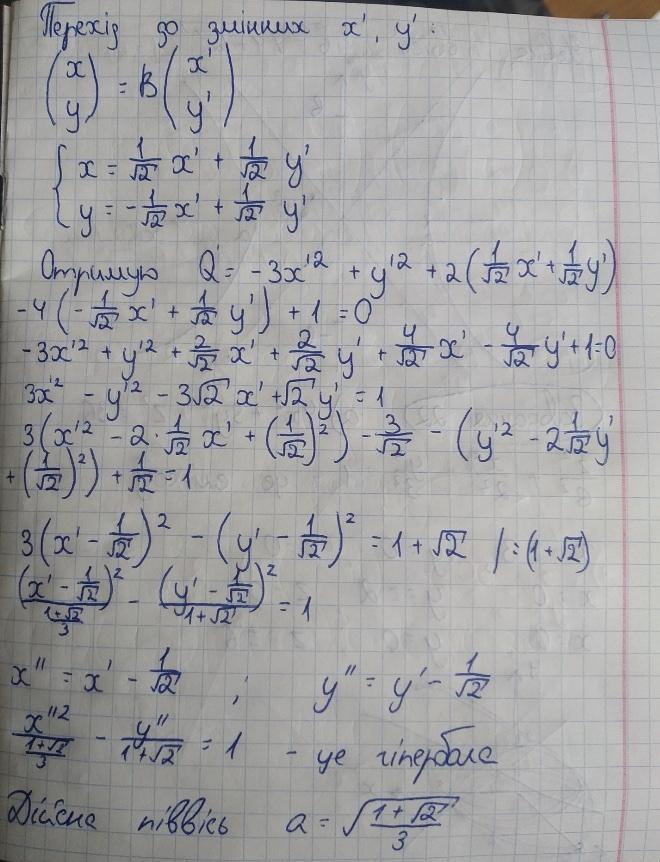 Перехід до змінних x', y':
(x y) = B (x' y')
{ x = 1/√2 x' + 1/√2 y'
y = -1/√2 x' + 1/√2 y'
Отримую Q' = -3x'² + y'² + 2(1/√2 x' + 1/√2 y')
-4(-1/√2 x' + 1/√2 y') + 1 = 0
-3x'² + y'² + 2/√2 x' + 2/√2 y' + 4/√2 x' - 4/√2 y' + 1 = 0
3x'² - y'² - 3√2 x' + √2 y' = 1
3(x'² - 2·1/√2 x' + (1/√2)²) - 3/√2 - (y'² - 2 1/√2 y'
+ (1/√2)²) + 1/√2 = 1
3(x' - 1/√2)² - (y' - 1/√2)² = 1 + √2 /:(1+√2)
(x' - 1/√2)²/((1+√2)/3) - (y' - 1/√2)²/(1+√2) = 1
x'' = x' - 1/√2 ; y'' = y' - 1/√2
x''²/((1+√2)/3) - y''/(1+√2) = 1 - це гіпербола
Дійсна піввісь a = √((1+√2)/3)